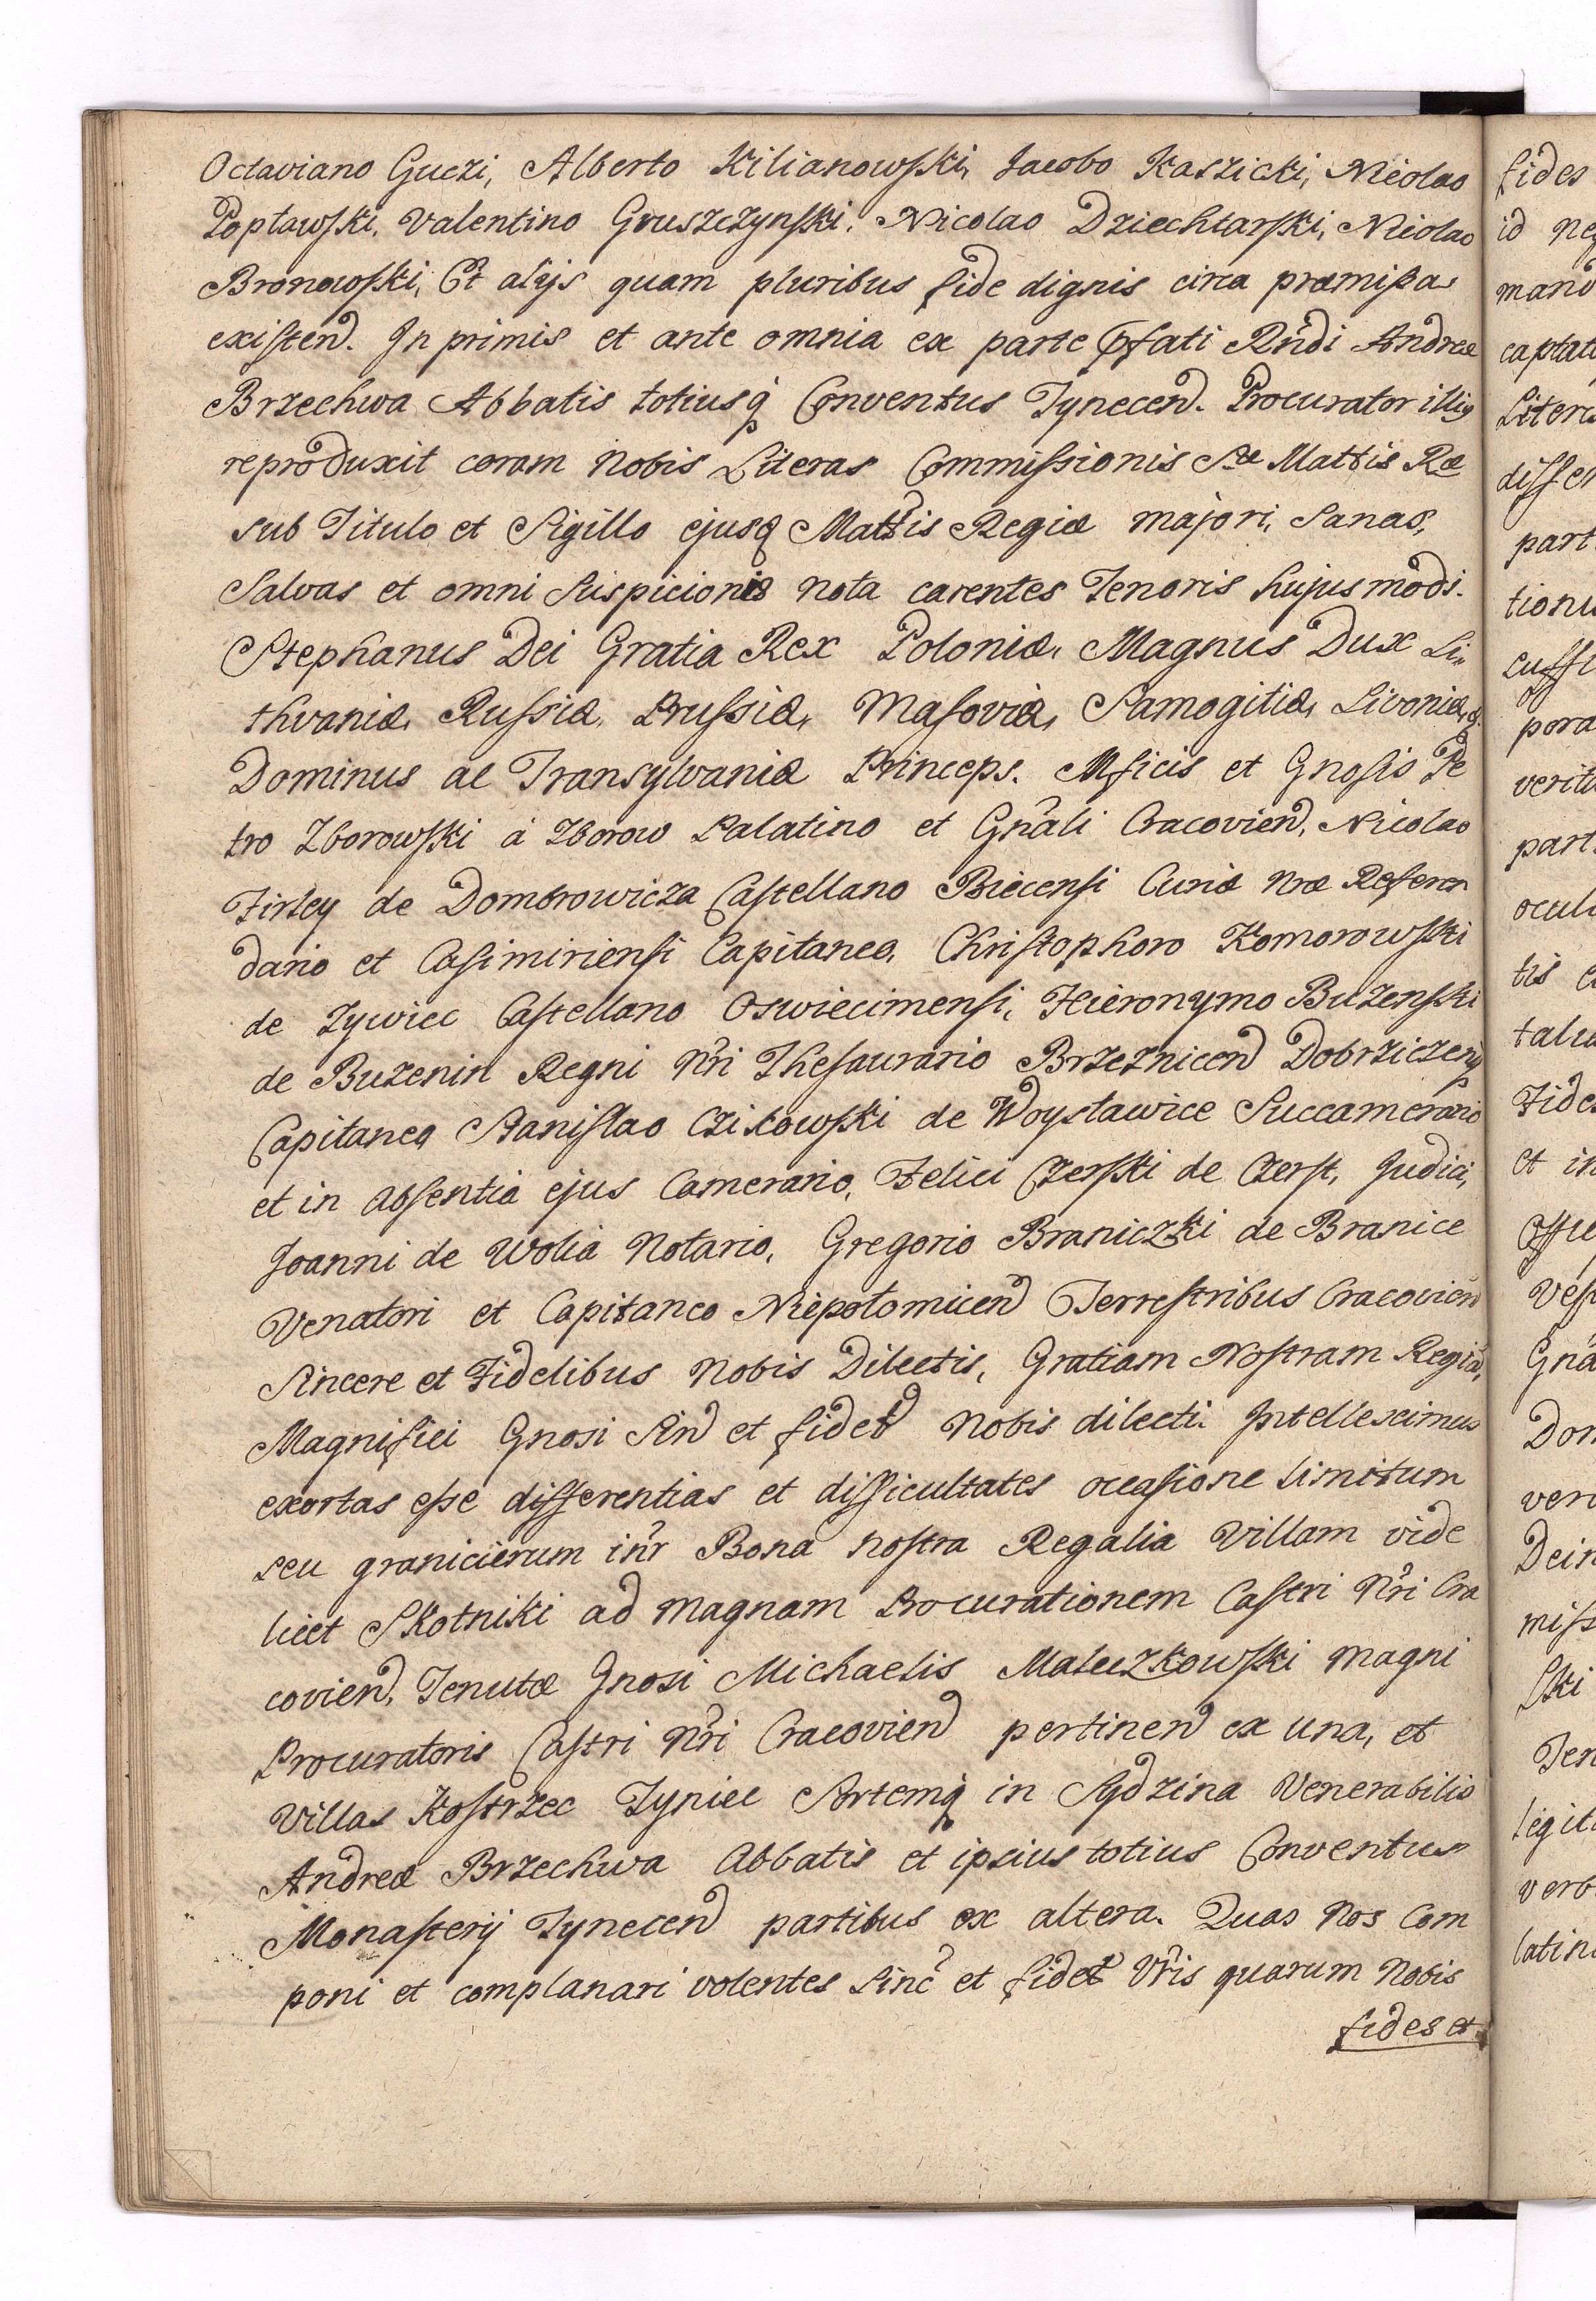 Octaviano Guczi, Alberto Kilianowski, Jacobo Kaszicki, Nicolao
Popławski, Valentino Gruszczynski, Nicolao Dziechtarski, Nicolao
Bronowski, Et alijs quam pluribus fide dignis circa præmissa
existend. In primis et ante omnia ex parte Pfati Rndi Andreæ
Brzechwa Abbatis totiusq Conventus Tynecen. Procurator illig
reproduxit coram Nobis Literas Commissionis Sæ Mattis Ræ
sub Titulo et Sigillo ejusq Mattis Regiæ majori, Sanas,
Salvas et omni Suspicionis nota carentes Tenoris hujusmodi.
Stephanus Dei Gratia Rex Poloniæ, Magnus Dux Li„
thvaniæ, Russiæ, Prussiæ, Masoviæ, Samogitiæ, Livoniæ, &.
Dominus ac Transylvaniæ Princeps. Mficis et Gnosis Pe
tro Zborowski á Zborow Palatino et Gnali Cracovien, Nicolao
Firley de Dombrowicza Castellano Biecensi Curiæ Nræ Referen
dario et Casimiriensi Capitaneo, Christophoro Komorowski
de Zywiec Castellano Oswiecimensi, Hieronymo Buzenski
de Buzenin Regni Nri Thesaurario Brzeznicen Dobrziczenq
Capitaneo Stanislao Czikowski de Woysławice Succamerario
et in absentia ejus Camerario, Felici Czerski de Czerst, Judici,
Joanni de Wolia Notario, Gregorio Braniczki de Branice
Venatori et Capitaneo Niepołomicen Terrestribus Cracovien
Sincere et Fidelibus Nobis Dilectis, Gratiam Nostram Regiā,
Magnifici Gnosi Sin et fidel Nobis dilecti. Intelleximus
exortas esse differentias et difficultates occasione limitum
seu granicierum inr Bona nostra Regalia Villam vide
licet Skotniki ad magnam Procurationem Castri Nri Cra
covien, Tenutæ Gnosi Michaelis Maleczkowski magni
Procuratoris Castri Nri Cracovien pertinen ex una, et
Villas Kostrzec Tyniec Sortemq in Sydzina Venerabilis
Andreæ Brzechwa Abbatis et ipsius totius Conventus
Monasterij Tynecen partibus ex altera. Quas Nos com
poni et complanari volentes Sinc et fidel Vris quarum Nobis
fides et